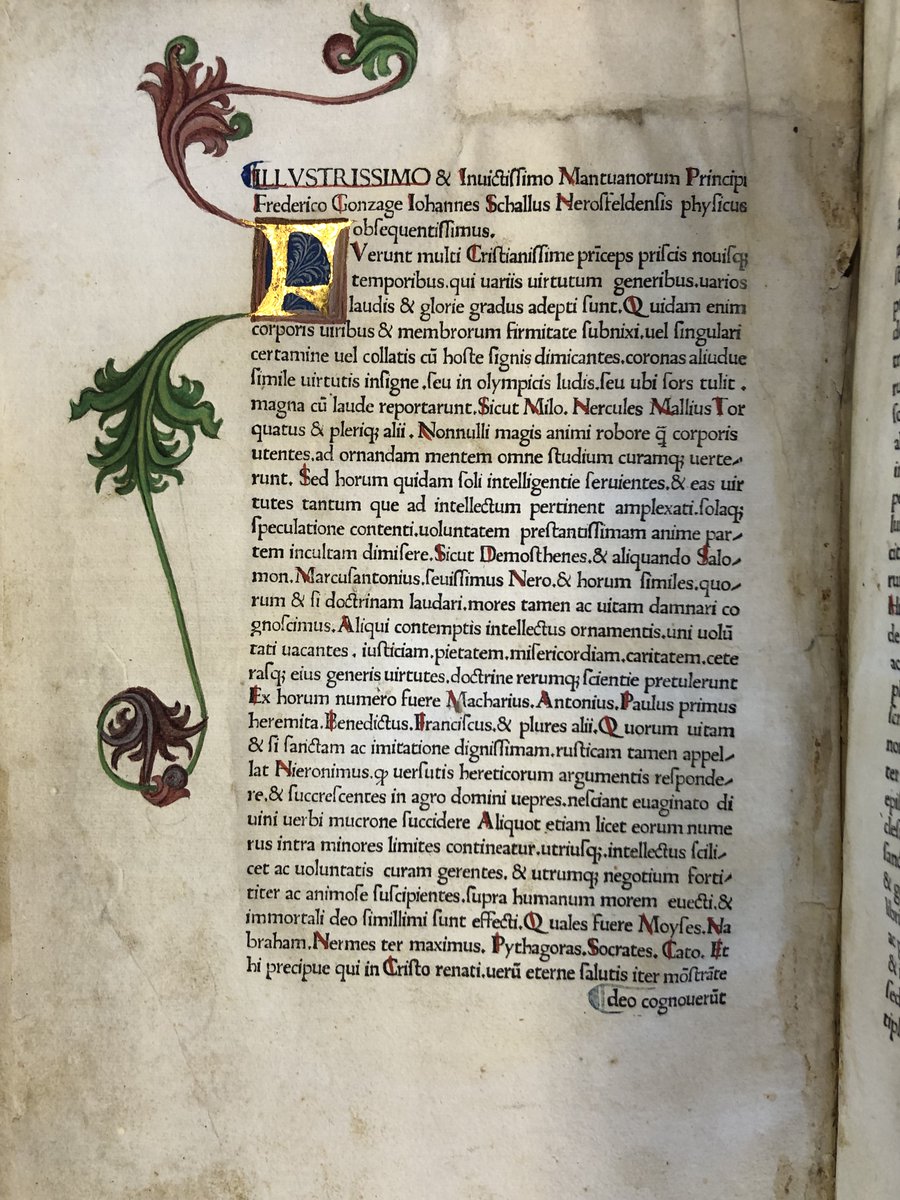 ILLVSTRISSIMO & Inuictiſſimo Mantuanorum Principi
Frederico Gonzage Iohannes Schallus Herosfeldensis phyſicus
obſequentiſſimus.
FVerunt multi Criſtianiſſime prīceps priſcis nouiſqꝫ
temporibus.qui uariis uirtutum generibus.uarios
laudis & glorie gradus adepti ſunt.Quidam enim
corporis uiribus & membrorum firmitate ſubnixi.uel ſingulari
certamine uel collatis cū hoſte ſignis dimicantes.coronas aliudue
ſimile uirtutis inſigne.ſeu in olympicis ludis.ſeu ubi ſors tulit.
magna cū laude reportarunt.Sicut Milo. Hercules Mallius Tor
quatus & pleriqꝫ alii. Nonnulli magis animi robore q̄ corporis
utentes.ad ornandam mentem omne ſtudium curamqꝫ uerte⸗
runt. Sed horum quidam ſoli intelligentie ſeruientes.& eas uir
tutes tantum que ad intellectum pertinent amplexati.ſolaqꝫ
ſpeculatione contenti.uoluntatem preſtantiſſimam anime par⸗
tem incultam dimiſere.Sicut Demoſthenes.& aliquando Salo⸗
mon.Marcuſantonius.ſeuiſſimus Nero.& horum ſimiles.quo⸗
rum & ſi doctrinam laudari.mores tamen ac uitam damnari co
gnoſcimus.Aliqui contemptis intellectus ornamentis.uni uolū
tati uacantes. iuſticiam.pietatem.miſericordiam.caritatem.cete
raſqꝫ eius generis uirtutes.doctrine rerumqꝫ ſcientie pretulerunt
Ex horum numero fuere Macharius. Antonius. Paulus primus
heremita.Benedictus.Franciſcus.& plures alii.Quorum uitam
& ſi ſanctam ac imitatione digniſſimam.ruſticam tamen appel⸗
lat Hieronimus.ꝙ uerſutis hereticorum argumentis reſponde⸗
re.& ſuccreſcentes in agro domini uepres.neſciant euaginato di
uini uerbi mucrone ſuccidere Aliquot etiam licet eorum nume
rus intra minores limites contineatur.utriuſqꝫ.intellectus ſcili⸗
cet ac uoluntatis curam gerentes. & utrumqꝫ negotium forti⸗
titer ac animoſe ſuſcipientes.ſupra humanum morem euecti.&
immortali deo ſimillimi ſunt effecti.Quales fuere Moyſes. Ha
braham.Hermes ter maximus. Pythagoras.Socrates. Cato. Et
hi precipue qui in Criſto renati.uerū eterne ſalutis iter mōſtrāte
deo cognouerūt